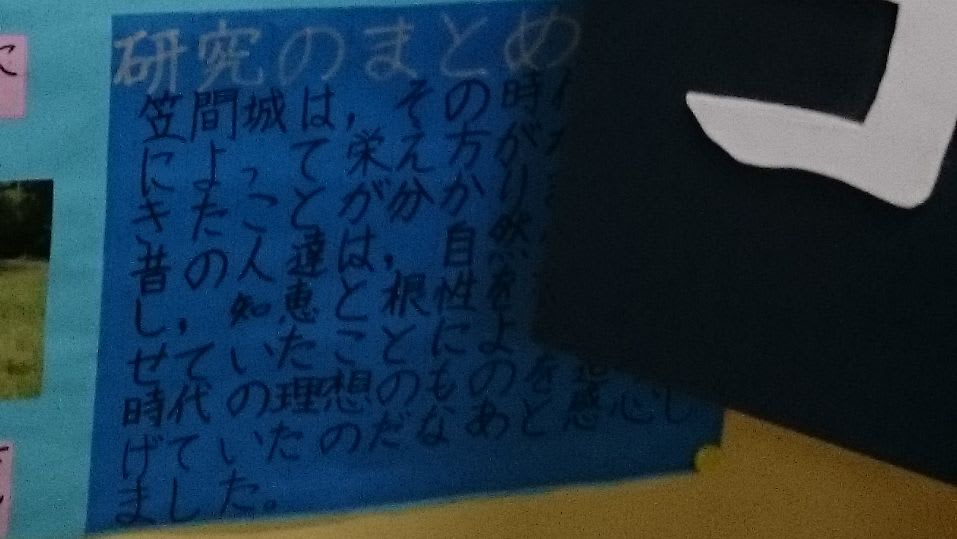 研究のまとめ
笠間城は，その時
によって栄え方が
きたことが分かり
昔の人達は，自然
し，知恵と根性を
せていたことによ
時代の理想のものを
げていたのだなあと感心し
ました。